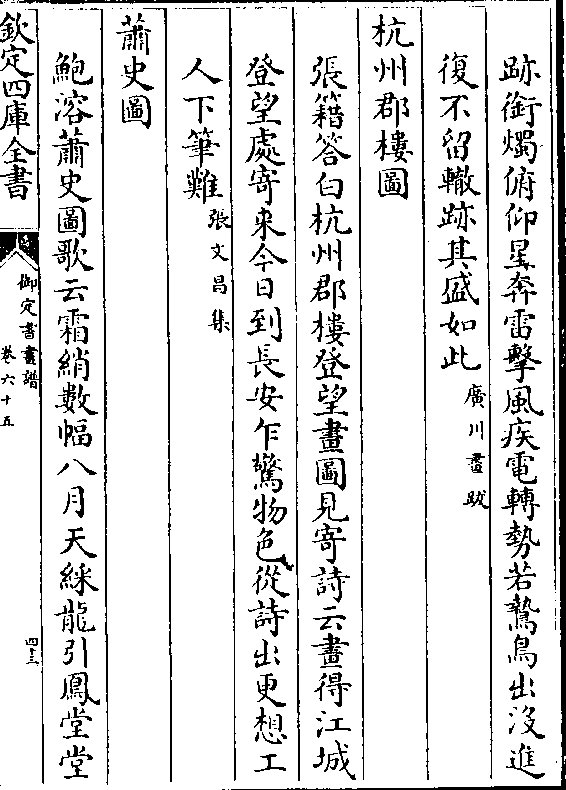 跡銜燭俯仰星奔雷擊風疾電轉勢若鷙鳥出沒進
復不留轍跡其盛如此廣川畫跋
杭州郡樓圖
張籍答白杭州郡樓登望畫圖見寄詩云畫得江城
登望處寄来今日到長安乍驚物色從詩出更想工
人下筆難張文昌集
蕭史圖
鮑溶蕭史圖歌云霜綃數幅八月天綵龍引鳳堂堂
欽定四庫全書
御定書畫譜
卷六十五
四十三